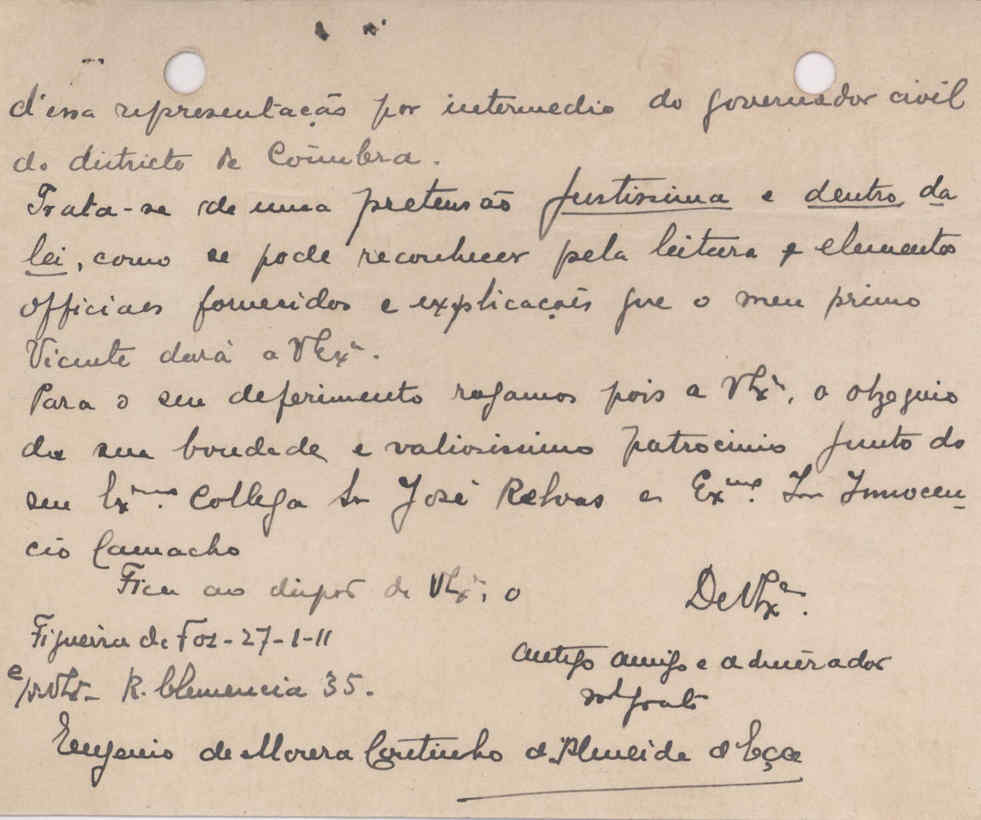 d'essa representação por intermedio do governador civil
do districto de Coimbra.
Trata-se de uma pretensão justissima e dentro da
lei, como se pode reconhecer pela leitura e elementos
officiaes fornecidos e explicações que o meu primo
Vicente dará a VExª.
Para o seu deferimento rogamos pois a VExª, o obzequio
da sua bondade e valiosissimo patrocinio junto do
seu Exmo. Collega Sr José Relvas e Exmo. Sr Innocen-
cio Camacho
Fica ao dispor de VExª, o
De VExª.
Figueira da Foz-27-1-11
antigo amigo e admirador
R. Clemencia 35.
grato
Eugenio de Morera Coutinho d'Almeida d'Eça